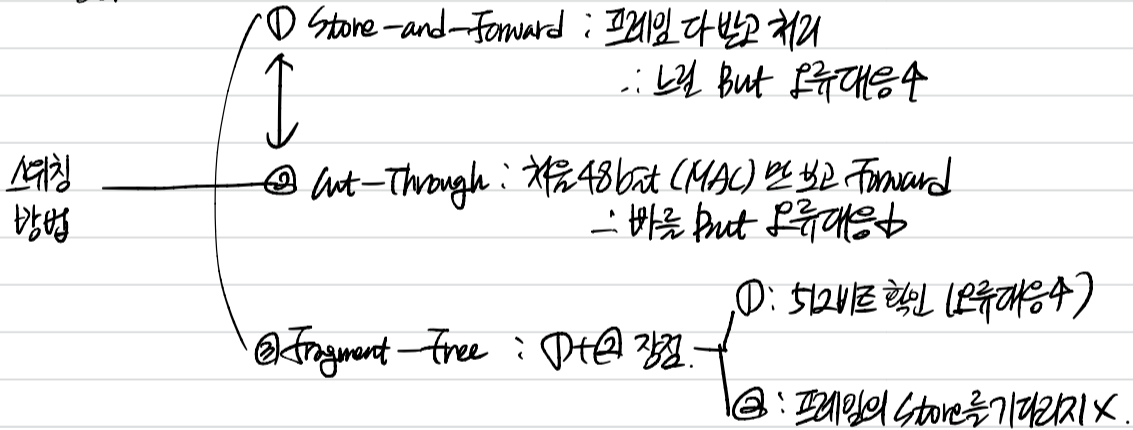 ① Store-and-Forward : 프레임 다 받고 처리
∴ 느림 But 오류대응↑
스위칭
방법
② Cut-Through : 처음 48bit (MAC) 만 보고 Forward
∴ 빠름 But 오류대응↓
③ Fragment-Free : ①+② 장점.
①: 512비트 확인 (오류대응↑)
②: 프레임의 Store를 기다리지 X.